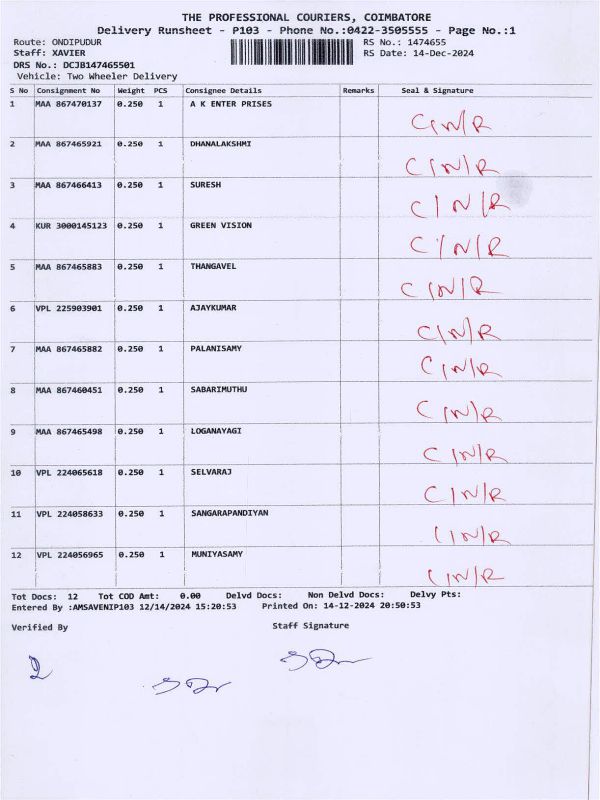 THE PROFESSIONAL COURIERS, COIMBATORE
Delivery Runsheet - P103 - Phone No.:0422-3505555 - Page No.:1
Route: ONDIPUDUR RS No.: 1474655
Staff: XAVIER RS Date: 14-Dec-2024
DRS No.: DCJB147465501
Vehicle: Two Wheeler Delivery
S No Consignment No Weight PCS Consignee Details Remarks Seal & Signature
1 MAA 867470137 0.250 1 A K ENTER PRISES C/N/R
2 MAA 867465921 0.250 1 DHANALAKSHMI C/N/R
3 MAA 867466413 0.250 1 SURESH C/N/R
4 KUR 3000145123 0.250 1 GREEN VISION C/N/R
5 MAA 867465883 0.250 1 THANGAVEL C/N/R
6 VPL 225903901 0.250 1 AJAYKUMAR C/N/R
7 MAA 867465882 0.250 1 PALANISAMY C/N/R
8 MAA 867460451 0.250 1 SABARIMUTHU C/N/R
9 MAA 867465498 0.250 1 LOGANAYAGI C/N/R
10 VPL 224065618 0.250 1 SELVARAJ C/N/R
11 VPL 224058633 0.250 1 SANGARAPANDIYAN C/N/R
12 VPL 224056965 0.250 1 MUNIYASAMY C/N/R
Tot Docs: 12 Tot COD Amt: 0.00 Delvd Docs: Non Delvd Docs: Delvy Pts:
Entered By :AMSAVENIP103 12/14/2024 15:20:53 Printed On: 14-12-2024 20:50:53
Verified By Staff Signature